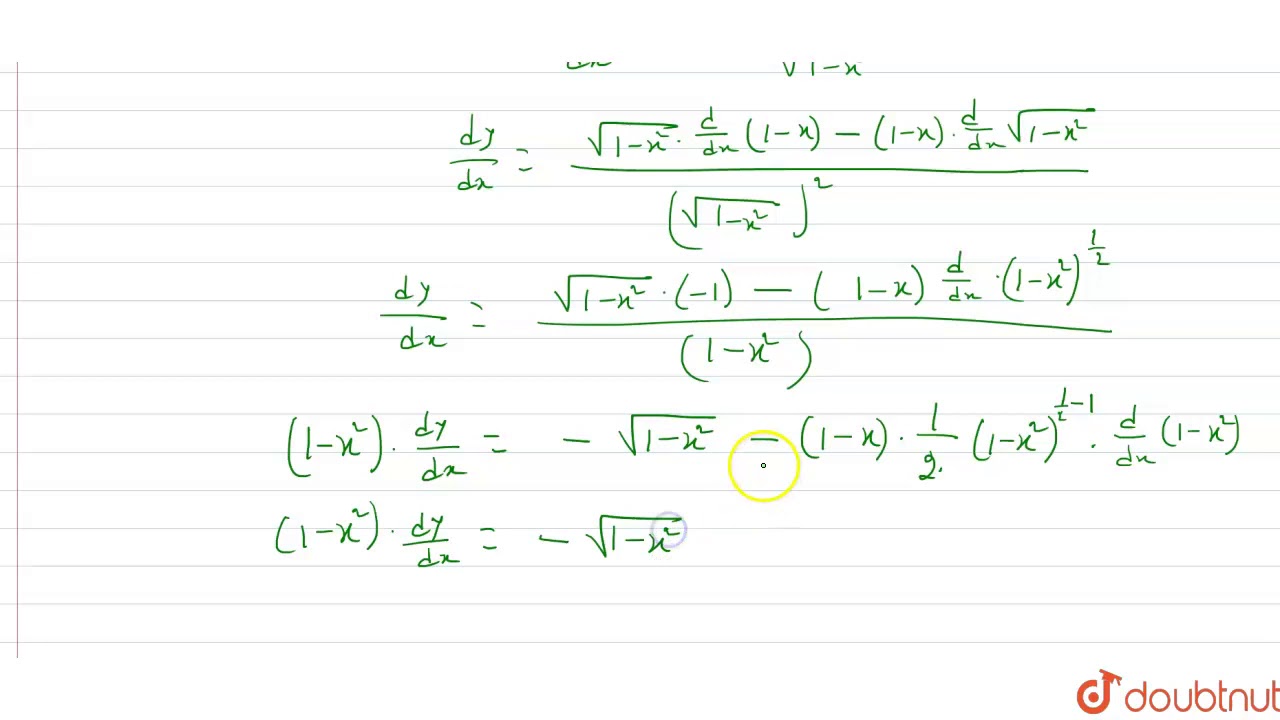 √1-x
dy/dx = (√(1-x²) · d/dx (1-x) - (1-x) · d/dx √(1-x²)) / (√(1-x²))²
dy/dx = (√(1-x²) · (-1) - (1-x) d/dx · (1-x²)^(1/2)) / (1-x²)
(1-x²) · dy/dx = - √(1-x²) - (1-x) · 1/2 · (1-x²)^(1/2-1) · d/dx (1-x²)
(1-x²) · dy/dx = - √(1-x²)
doubtnut